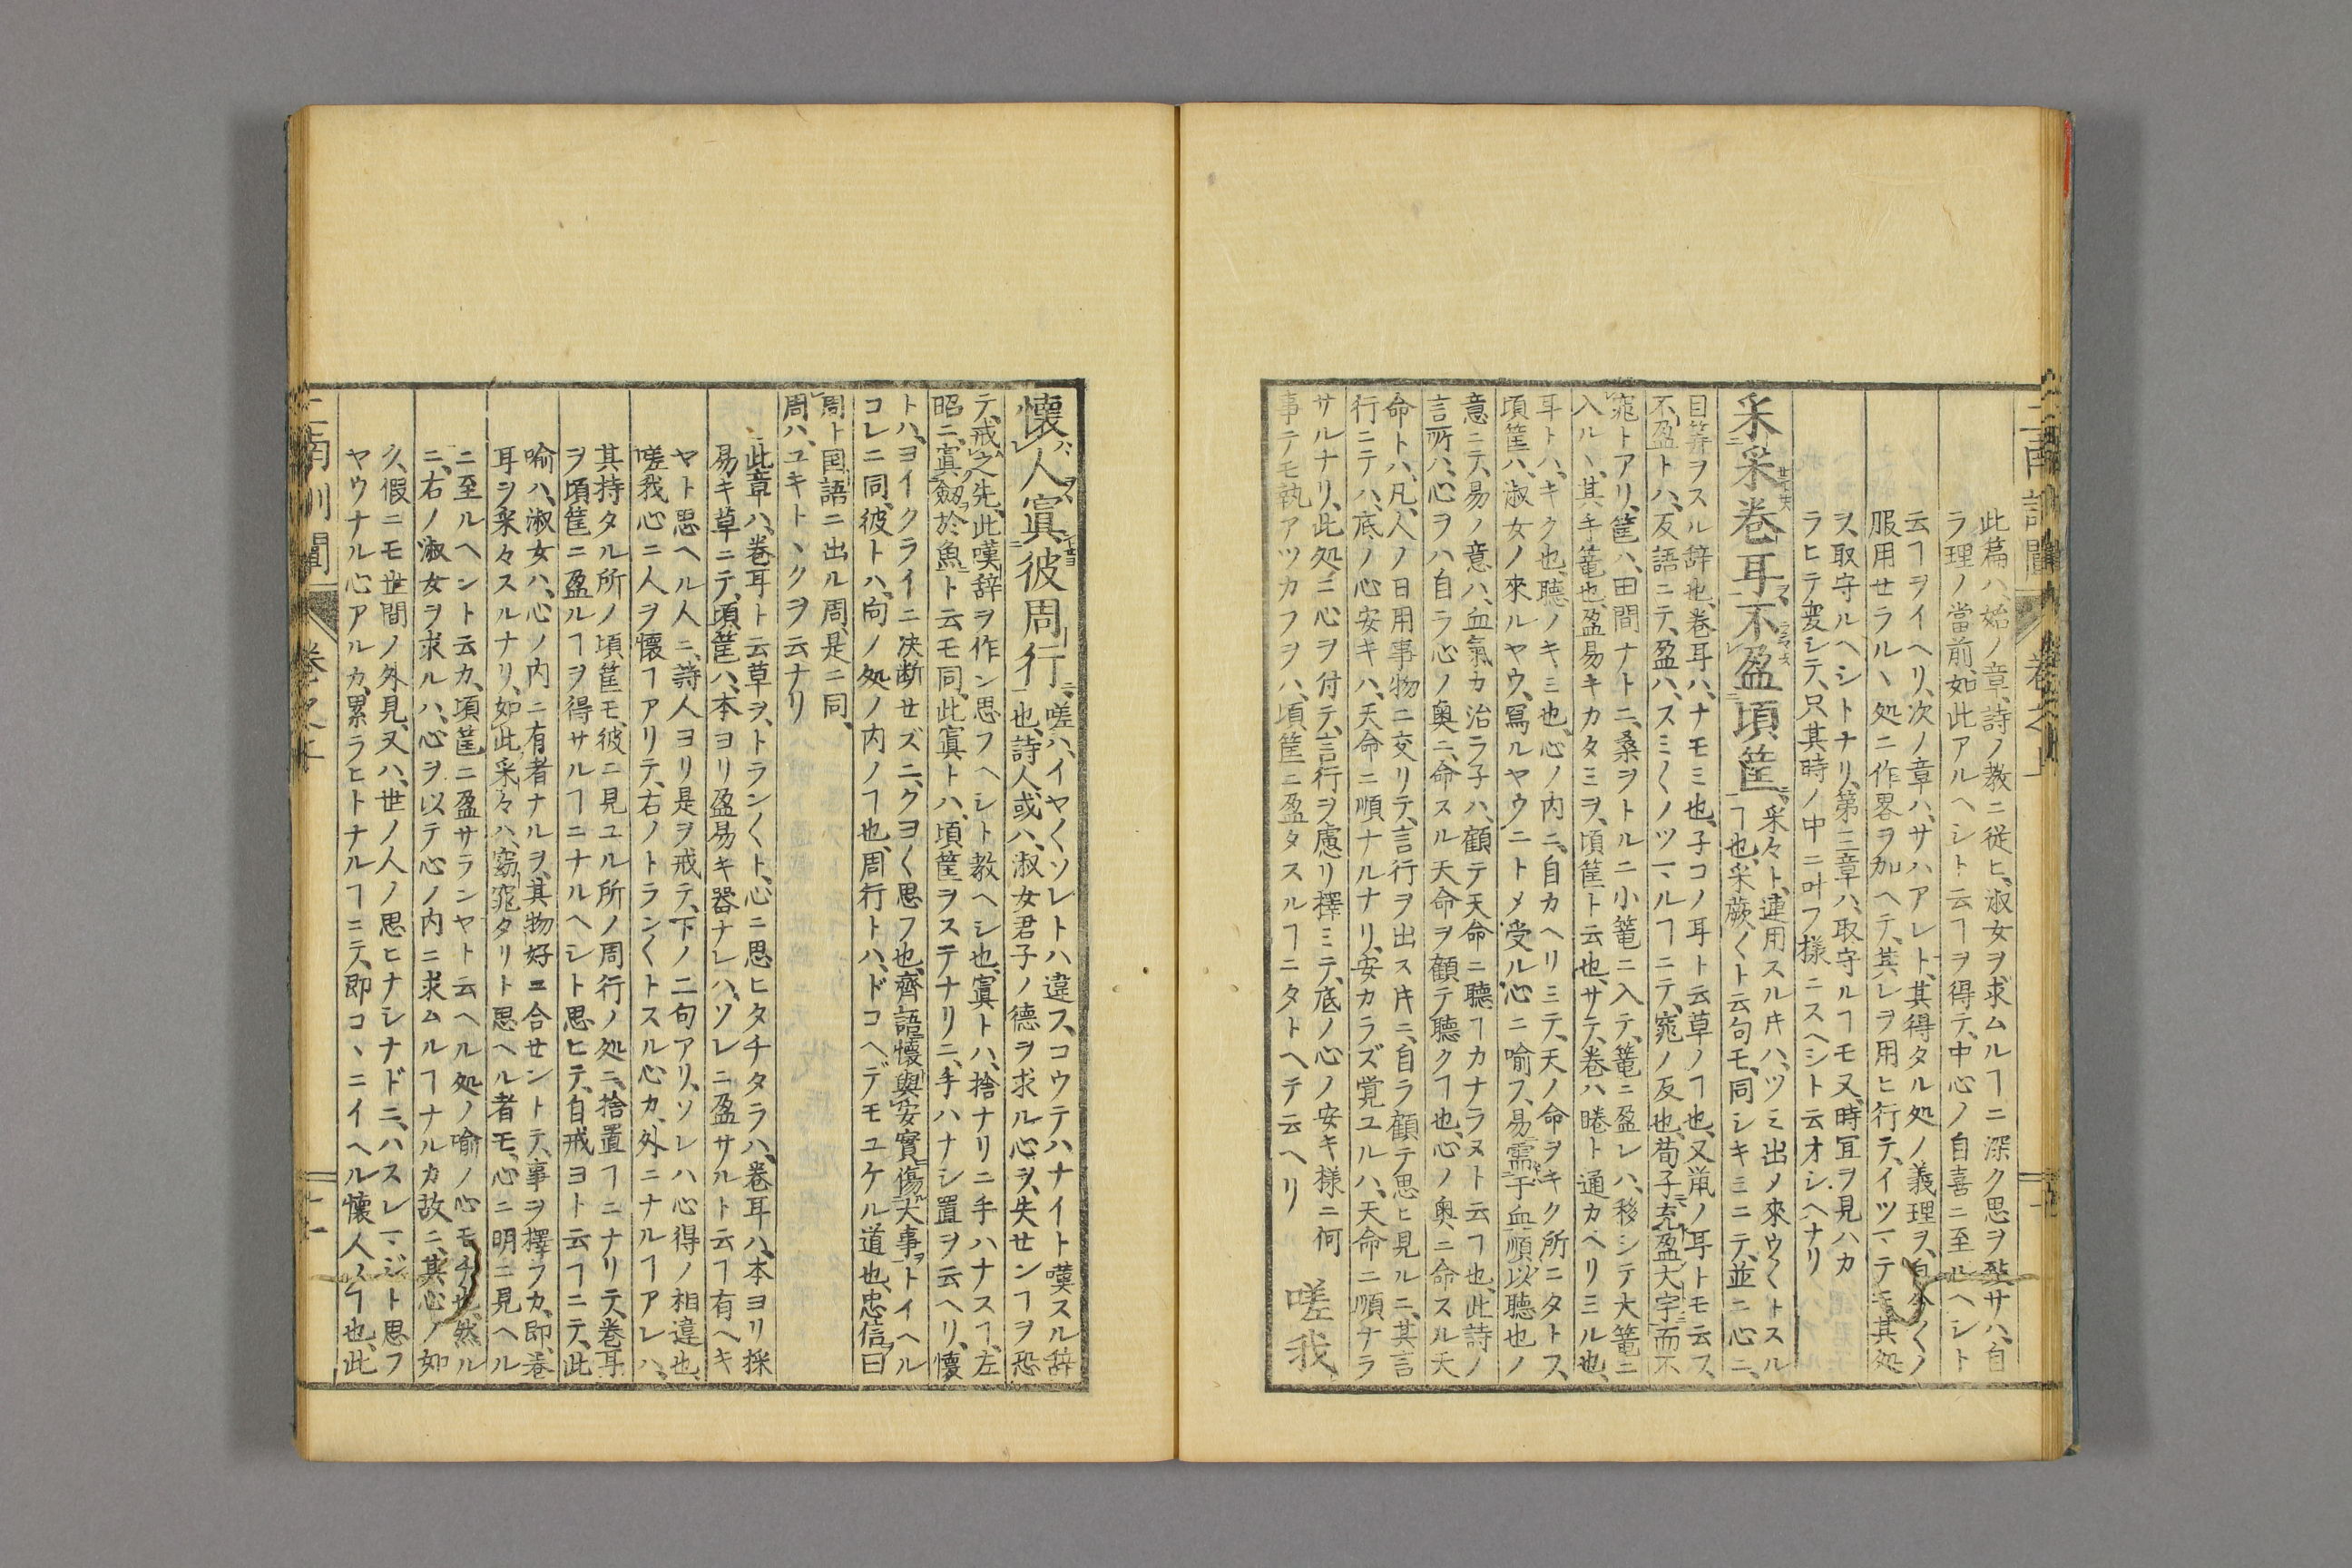 此篇ハ、始ノ章、詩ノ教ニ従ヒ、淑女ヲ求ムルヿニ深ク思ヲ
ラ理ノ當前、如此アルヘシト云ヿヲ得テ、中心ノ自喜ニ至ルヘシト
云ヿヲイヘリ、次ノ章ハ、サハアレト、其得タル処ノ義理ヲ、
服用セラルヽ処ニ作畧ヲ加ヘテ、其レヲ用ヒ行テ、イツマテモ其処
ヲ、取守ルヘシトナリ、第三章ハ、取守ルヿモ又、時冝ヲ見ハカ
ラヒテ変シテ、只其時ノ中ニ叶フ様ニスヘシト云オシヘナリ
采采巻耳不盈頃筐
采々ト、連用スル㐧ハ、ツミ出ノ來ウ〱トスル
ヿ也、采蕨〱ト云句モ、同シキミニテ、並ニ心ニ、
目筭ヲスル辞也、巻耳ハ、ナモミ也、子コノ耳ト云草ノヿ也、又䑕ノ耳トモ云ス、
不盈トハ、反語ニテ、盈ハ、スミ〱ノツマルヿニテ、窕ノ反也、荀子充盈大宇而不
窕トアリ、筐ハ、田間ナトニ、桑ヲトルニ小篭ニ入テ、篭ニ盈レハ、移シテ大篭ニ
入ルヽ、其手篭也、盈易キカタミヲ、頃筐ト云也、サテ、巻ハ睠ト通カヘリミル也、
耳トハ、キク也、聴ノキミ也、心ノ内ニ、自カヘリミテ、天ノ命ヲキク所ニタトス、
頃筐ハ、淑女ノ來ルヤウ、冩ルヤウニトメ受ル、心ニ喻フ、易需于血、順以聴也ノ
意ニテ、易ノ意ハ、血氣カ治ラ子ハ、顧テ天命ニ聴ヿカナラヌト云ヿ也、此詩ノ
言所ハ、心ヲハ自ラ心ノ奥ニ、命スル天命ヲ顧テ聴クヿ也、心ノ奥ニ命スル天
命トハ、凡、人ノ日用事物ニ交リテ、言行ヲ出ス㐧ニ、自ラ顧テ思ヒ見ルニ、其言
行ニテハ、底ノ心安キハ、天命ニ順ナルナリ、安カラズ覚ユルハ、天命ニ順ナラ
サルナリ、此処ニ心ヲ付テ、言行ヲ慮リ擇ミテ、底ノ心ノ安キ様ニ何
事テモ執アツカフヲハ、頃筐ニ盈タスルヿニタトヘテ云ヘリ
嗟我
懐人寘彼周行
嗟ハ、イヤ〱ソレトハ違ス、コウテハナイト嘆スル辞
也、詩人、或ハ、淑女君子ノ德ヲ求ル心ヲ、失センヿヲ恐
テ、戒之先、此嘆辞ヲ作ン思フヘシト教ヘシ也、寘トハ、捨ナリニ手ハナスヿ、左
昭ニ、寘劔於魚ト云モ同、此寘トハ、頃筐ヲステナリニ、手ハナシ置ヲ云ヘリ、懐
トハ、ヨイクライニ决断セズニ、クヨ〱思フ也、齊語懐與安實傷大事トイヘル
コレニ同、彼トハ、向ノ処ノ内ノヿ也、周行トハ、ドコヘデモユケル道也、忠信曰
周ト国語ニ出ル周、是ニ同、
周ハ、ユキトヽクヲ云ナリ
此章ハ、巻耳ト云草ヲ、トラン〱ト、心ニ思ヒタチタラハ、巻耳ハ、本ヨリ採
易キ草ニテ、頃筐ハ、本ヨリ盈易キ器ナレハ、ソレニ盈サルト云ヿ有ヘキ
ヤト思ヘル人ニ、詩人ヨリ是ヲ戒テ、下ノ二句アリ、ソレハ心得ノ相違也、
嗟我心ニ人ヲ懐ヿアリテ、右ノトラン〱トスル心カ、外ニナルヿアレハ、
其持タル所ノ頃筐モ、彼ニ見ユル所ノ周行ノ処ニ、捨置ヿニナリテ、巻耳
ヲ頃筐ニ盈ルヿヲ得サルヿニナルヘシト思ヒテ、自戒ヨト云ヿニテ、此
喻ハ、淑女ハ、心ノ内ニ有者ナルヲ、其物好ニ合セントテ、事ヲ擇フカ、即、巻
耳ヲ采々スルナリ、如此采々ハ、窈窕タリト思ヘル者モ、心ニ明ニ見ヘル
ニ至ルヘシト云カ、頃筐ニ盈サランヤト云ヘル処ノ喻ノ心モチ也、然ル
ニ、右ノ淑女ヲ求ルハ、心ヲ以テ心ノ内ニ求ムルヿナルカ故ニ、其心ノ如
久、假ニモ世間ノ外見、又ハ、世ノ人ノ思ヒナシナドニ、ハスレマジト思フ
ヤウナル心アルカ、累ラヒトナルヿニテ、即コヽニイヘル懐人ノヿ也、此